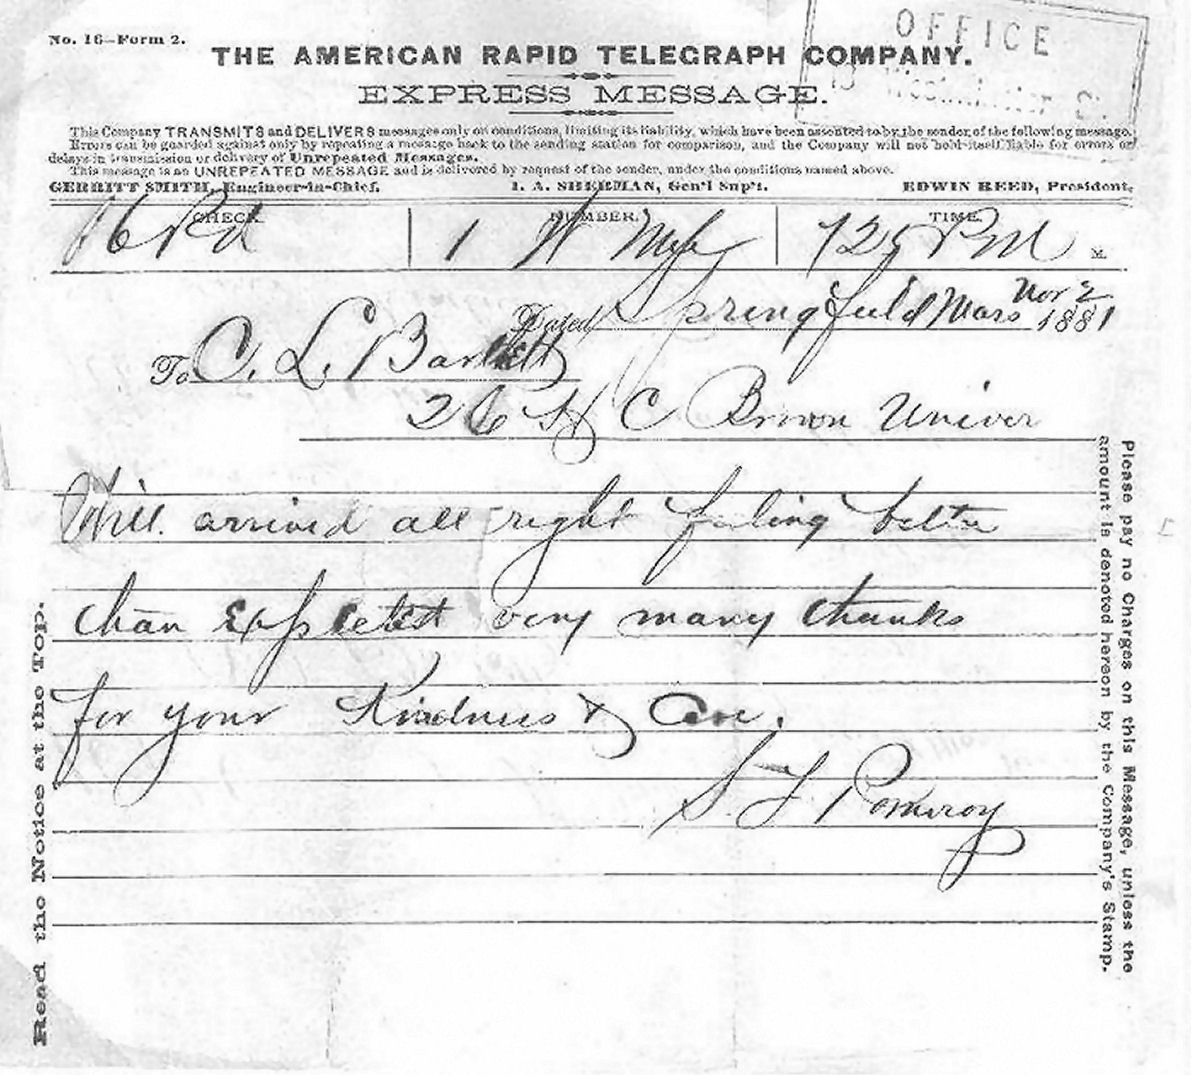 No. 16—Form 2.
OFFICE
THE AMERICAN RAPID TELEGRAPH COMPANY.
EXPRESS MESSAGE.
This Company TRANSMITS and DELIVERS messages only on conditions, limiting its liability, which have been assented to by the sender of the following message.
Errors can be guarded against only by repeating a message back to the sending station for comparison, and the Company will not hold itself liable for errors or
delays in transmission or delivery of Unrepeated Messages.
This message is an UNREPEATED MESSAGE and is delivered by request of the sender, under the conditions named above.
GERRITT SMITH, Engineer-in-Chief. I. A. SHERMAN, Gen'l Sup't. EDWIN REED, President.
CHECK. NUMBER. TIME.
16 Pd 1 W 725 PM M.
Dated Springfield Mass Nov 2 1881
To C. L. Bartlett
26 H C Brown Univer
Will arrived all right feeling better
than Expected very many thanks
for your Kindness & Care.
Pomeroy
Read the Notice at the Top.
Please pay no Charges on this Message, unless the
amount is denoted hereon by the Company's Stamp.